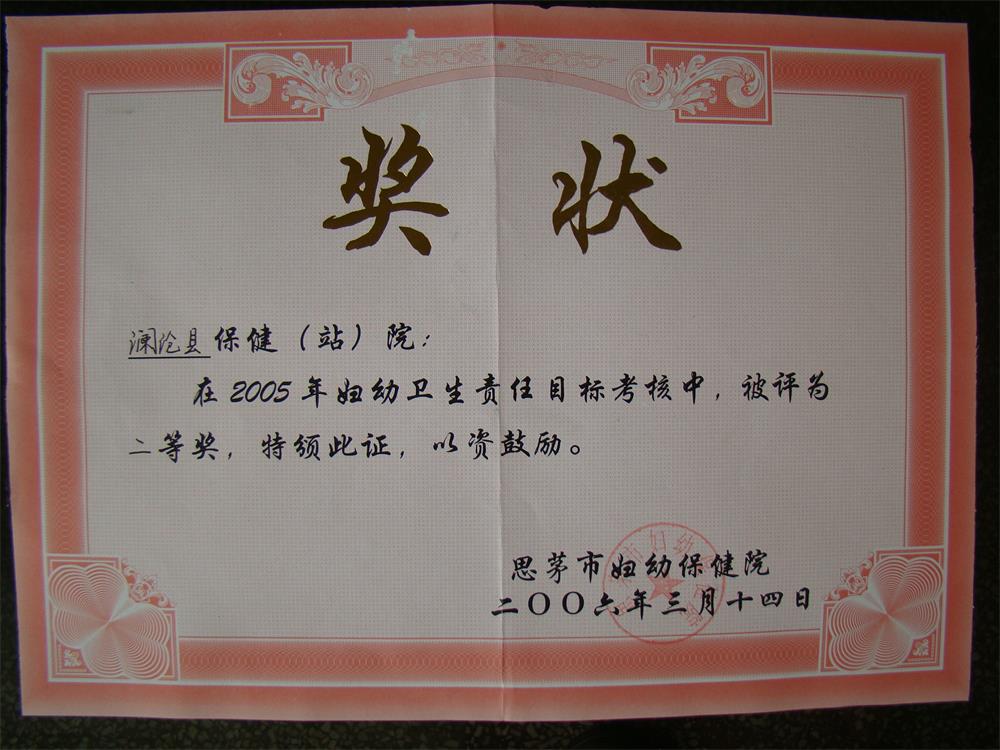 奖状
澜沧县保健（站）院：
在2005年妇幼卫生责任目标考核中，被评为
二等奖，特颁此证，以资鼓励。
思茅市妇幼保健院
二〇〇六年三月十四日